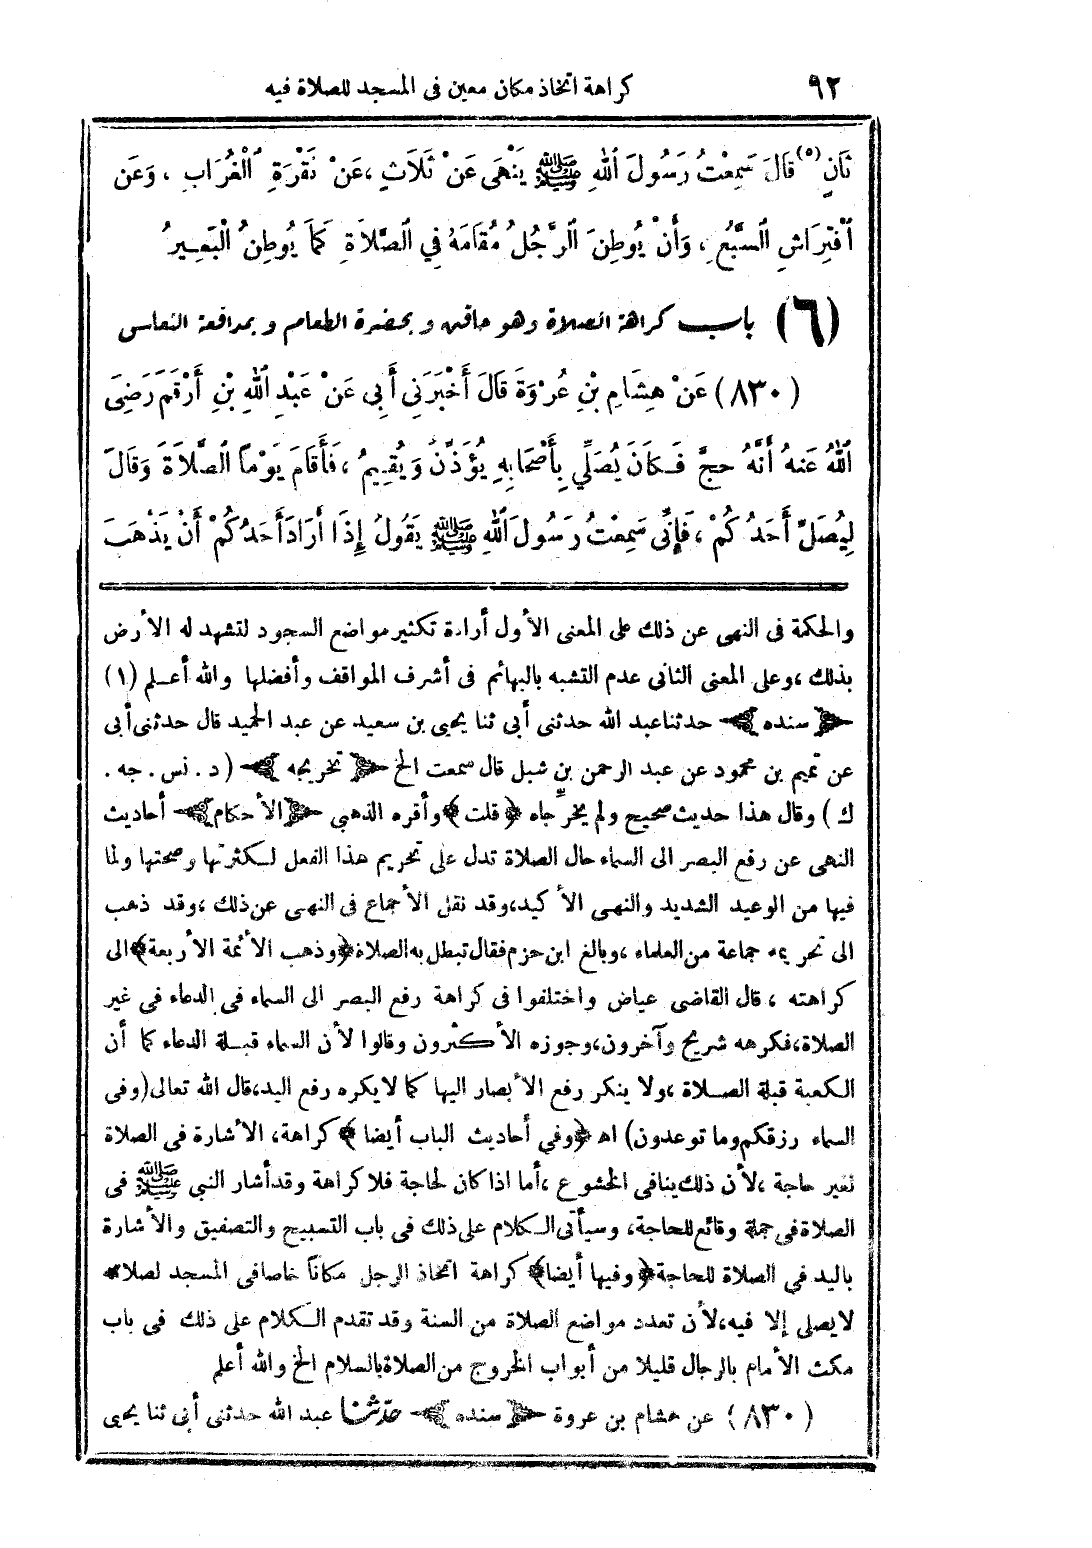 ٩٢ كراهة اتخاذ مكان معين فى المسجد للصلاة فيه
ثَانٍ (٥) قَالَ سَمِعْتُ رَسُولَ اللهِ ﷺ يَنْهَى عَنْ ثَلَاثٍ ، عَنْ نَقْرَةِ الْغُرَابِ ، وَعَن
افْتِرَاشِ السَّبُعِ ، وَأَنْ يُوطِنَ الرَّجُلُ مُقَامَهُ فِي الصَّلَاةِ كَمَا يُوطِنُ الْبَعِيرُ
(٦) باب كراهة الصلاة وهو حاقن وبحضرة الطعام وبمدافعة النعاس
(٨٣٠) عَنْ هِشَامِ بْنِ عُرْوَةَ قَالَ أَخْبَرَنِى أَبِى عَنْ عَبْدِ اللهِ بْنِ أَرْقَمَ رَضِىَ
اللهُ عَنهُ أَنَّهُ حجَّ فَكَانَ يُصَلِّي بِأَصْحَابِهِ يُؤَذِّنُ وَيُقِيمُ ، فَأَقَامَ يَوْماً الصَّلَاةَ وَقَالَ
لِيُصَلِّ أَحَدُكُمْ ، فَإِنِّى سَمِعْتُ رَسُولَ اللهِ ﷺ يَقُولُ إِذَا أَرَادَ أَحَدُكُمْ أَنْ يَذْهَبَ
والحكمة فى النهى عن ذلك على المعنى الأول أرادة تكثير مواضع السجود لتشهد له الأرض
بذلك ، وعلى المعنى الثانى عدم التشبه بالبهائم فى أشرف المواقف وأفضلها والله أعلم (١)
﴿ سنده ﴾ حدثنا عبد الله حدثنى أبى ثنا يحيى بن سعيد عن عبد الحميد قال حدثنى أبى
عن تميم بن محمود عن عبد الرحمن بن شبل قال سمعت الخ ﴿ تخريجه ﴾ ( د . نس . جه .
ك ) وقال هذا حديث صحيح ولم يخرّجاه ﴿ قلت ﴾ وأقره الذهبى ﴿ الأحكام ﴾ أحاديث
النهى عن رفع البصر الى السماء حال الصلاة تدل على تحريم هذا الفعل لكثرتها وصحتها ولما
فيها من الوعيد الشديد والنهى الأكيد، وقد نقل الأجماع فى النهى عن ذلك ، وقد ذهب
الى تحريمه جماعة من العلماء ، وبالغ ابن حزم فقال تبطل به الصلاة ﴿ وذهب الأئمة الأربعة ﴾ الى
كراهته ، قال القاضى عياض واختلفوا فى كراهة رفع البصر الى السماء فى الدعاء فى غير
الصلاة، فكرهه شريح وآخرون، وجوزه الأكثرون وقالوا لأن السماء قبلة الدعاء كما أن
الكعبة قبلة الصلاة ، ولا ينكر رفع الأبصار اليها كما لا يكره رفع اليد، قال الله تعالى (وفى
السماء رزقكم وما توعدون) اه ﴿ وفى أحاديث الباب أيضا ﴾ كراهة، الأشارة فى الصلاة
لغير حاجة ، لأن ذلك ينافى الخشوع ، أما اذا كان لحاجة فلا كراهة وقد أشار النبى ﷺ فى
الصلاة فى جملة وقائع للحاجة، وسيأتى الكلام على ذلك فى باب التسبيح والتصفيق والأشارة
باليد فى الصلاة للحاجة ﴿ وفيها أيضا ﴾ كراهة اتخاذ الرجل مكاناً خاصا فى المسجد لصلاته
لا يصلى إلا فيه، لأن تعدد مواضع الصلاة من السنة وقد تقدم الكلام على ذلك فى باب
مكث الأمام بالرجال قليلا من أبواب الخروج من الصلاة بالسلام الخ والله أعلم
(٨٣٠) عن هشام بن عروة ﴿ سنده ﴾ حدّثنا عبد الله حدثنى أبى ثنا يحيى